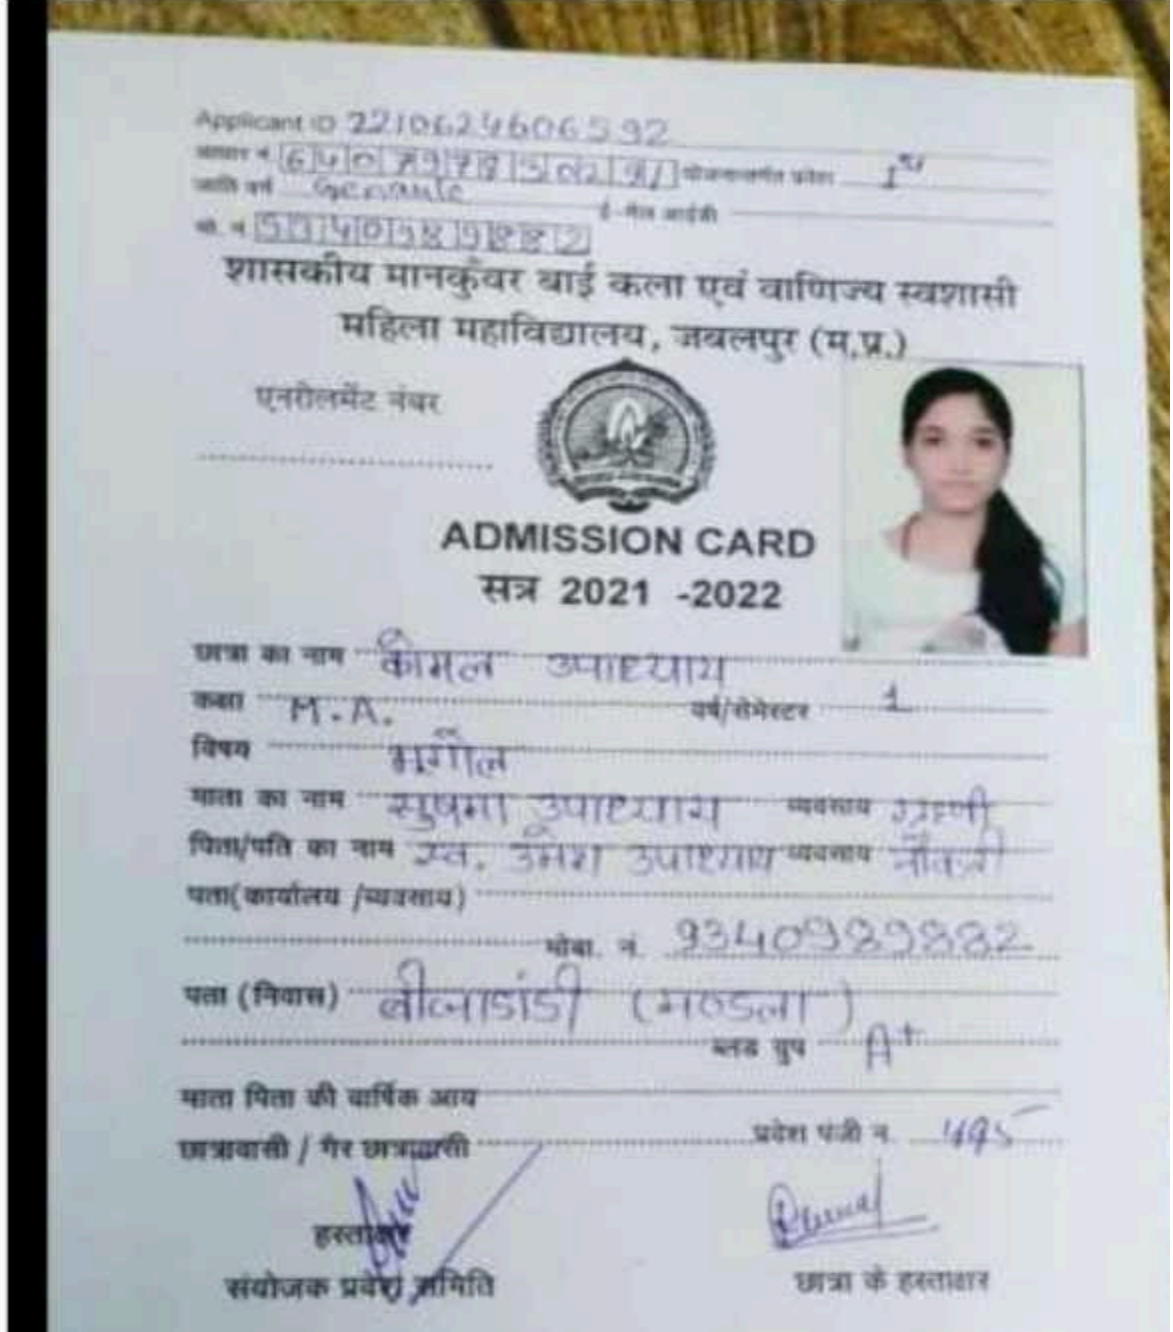 Applicant ID 2210624606592
आधार नं. योजनान्तर्गत प्रवेश 1st
जाति वर्ग ई-मेल आईडी
मो. नं.
शासकीय मानकुँवर बाई कला एवं वाणिज्य स्वशासी
महिला महाविद्यालय, जबलपुर (म.प्र.)
एनरोलमेंट नंबर
ADMISSION CARD
सत्र 2021 -2022
छात्रा का नाम कोमल उपाध्याय
कक्षा M.A. वर्ष/सेमेस्टर 1
विषय भूगोल
माता का नाम सुषमा उपाध्याय व्यवसाय गृहणी
पिता/पति का नाम स्व. उमेश उपाध्याय व्यवसाय नौकरी
पता(कार्यालय /व्यवसाय)
मोबा. नं. 9340989882
पता (निवास) बीजाडांडी (मण्डला)
ब्लड ग्रुप A+
माता पिता की वार्षिक आय
छात्रावासी / गैर छात्रावासी प्रवेश पंजी न. 495
हस्ताक्षर
संयोजक प्रवेश समिति छात्रा के हस्ताक्षर